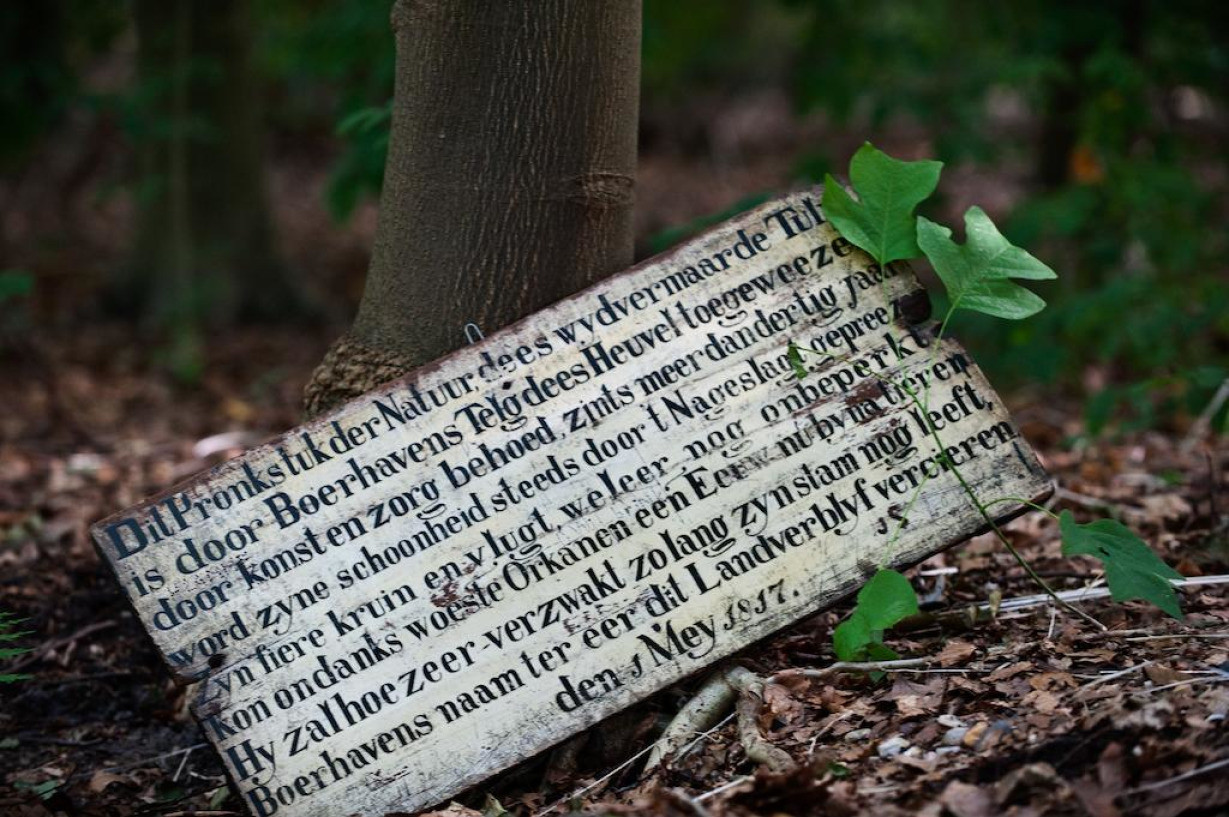 Dit Pronkstuk der Natuur, dees wydvermaarde
is door Boerhavens Telg dees Heuvel toegeweeze
door konst en zorg behoed, zints meer dan dertig jaar
word zyne schoonheid steeds door 't Nageslacht gepreez
zyn fiere kruin en vlugt, weleer nog onbeperkt
kon ondanks woeste Orkanen een Eeuw nu byna tieren
Hy zal hoe zeer verzwakt zo lang zyn stam nog leeft,
Boerhavens naam ter eer dit Landverblyf vercieren
den 1 Mey 1817.